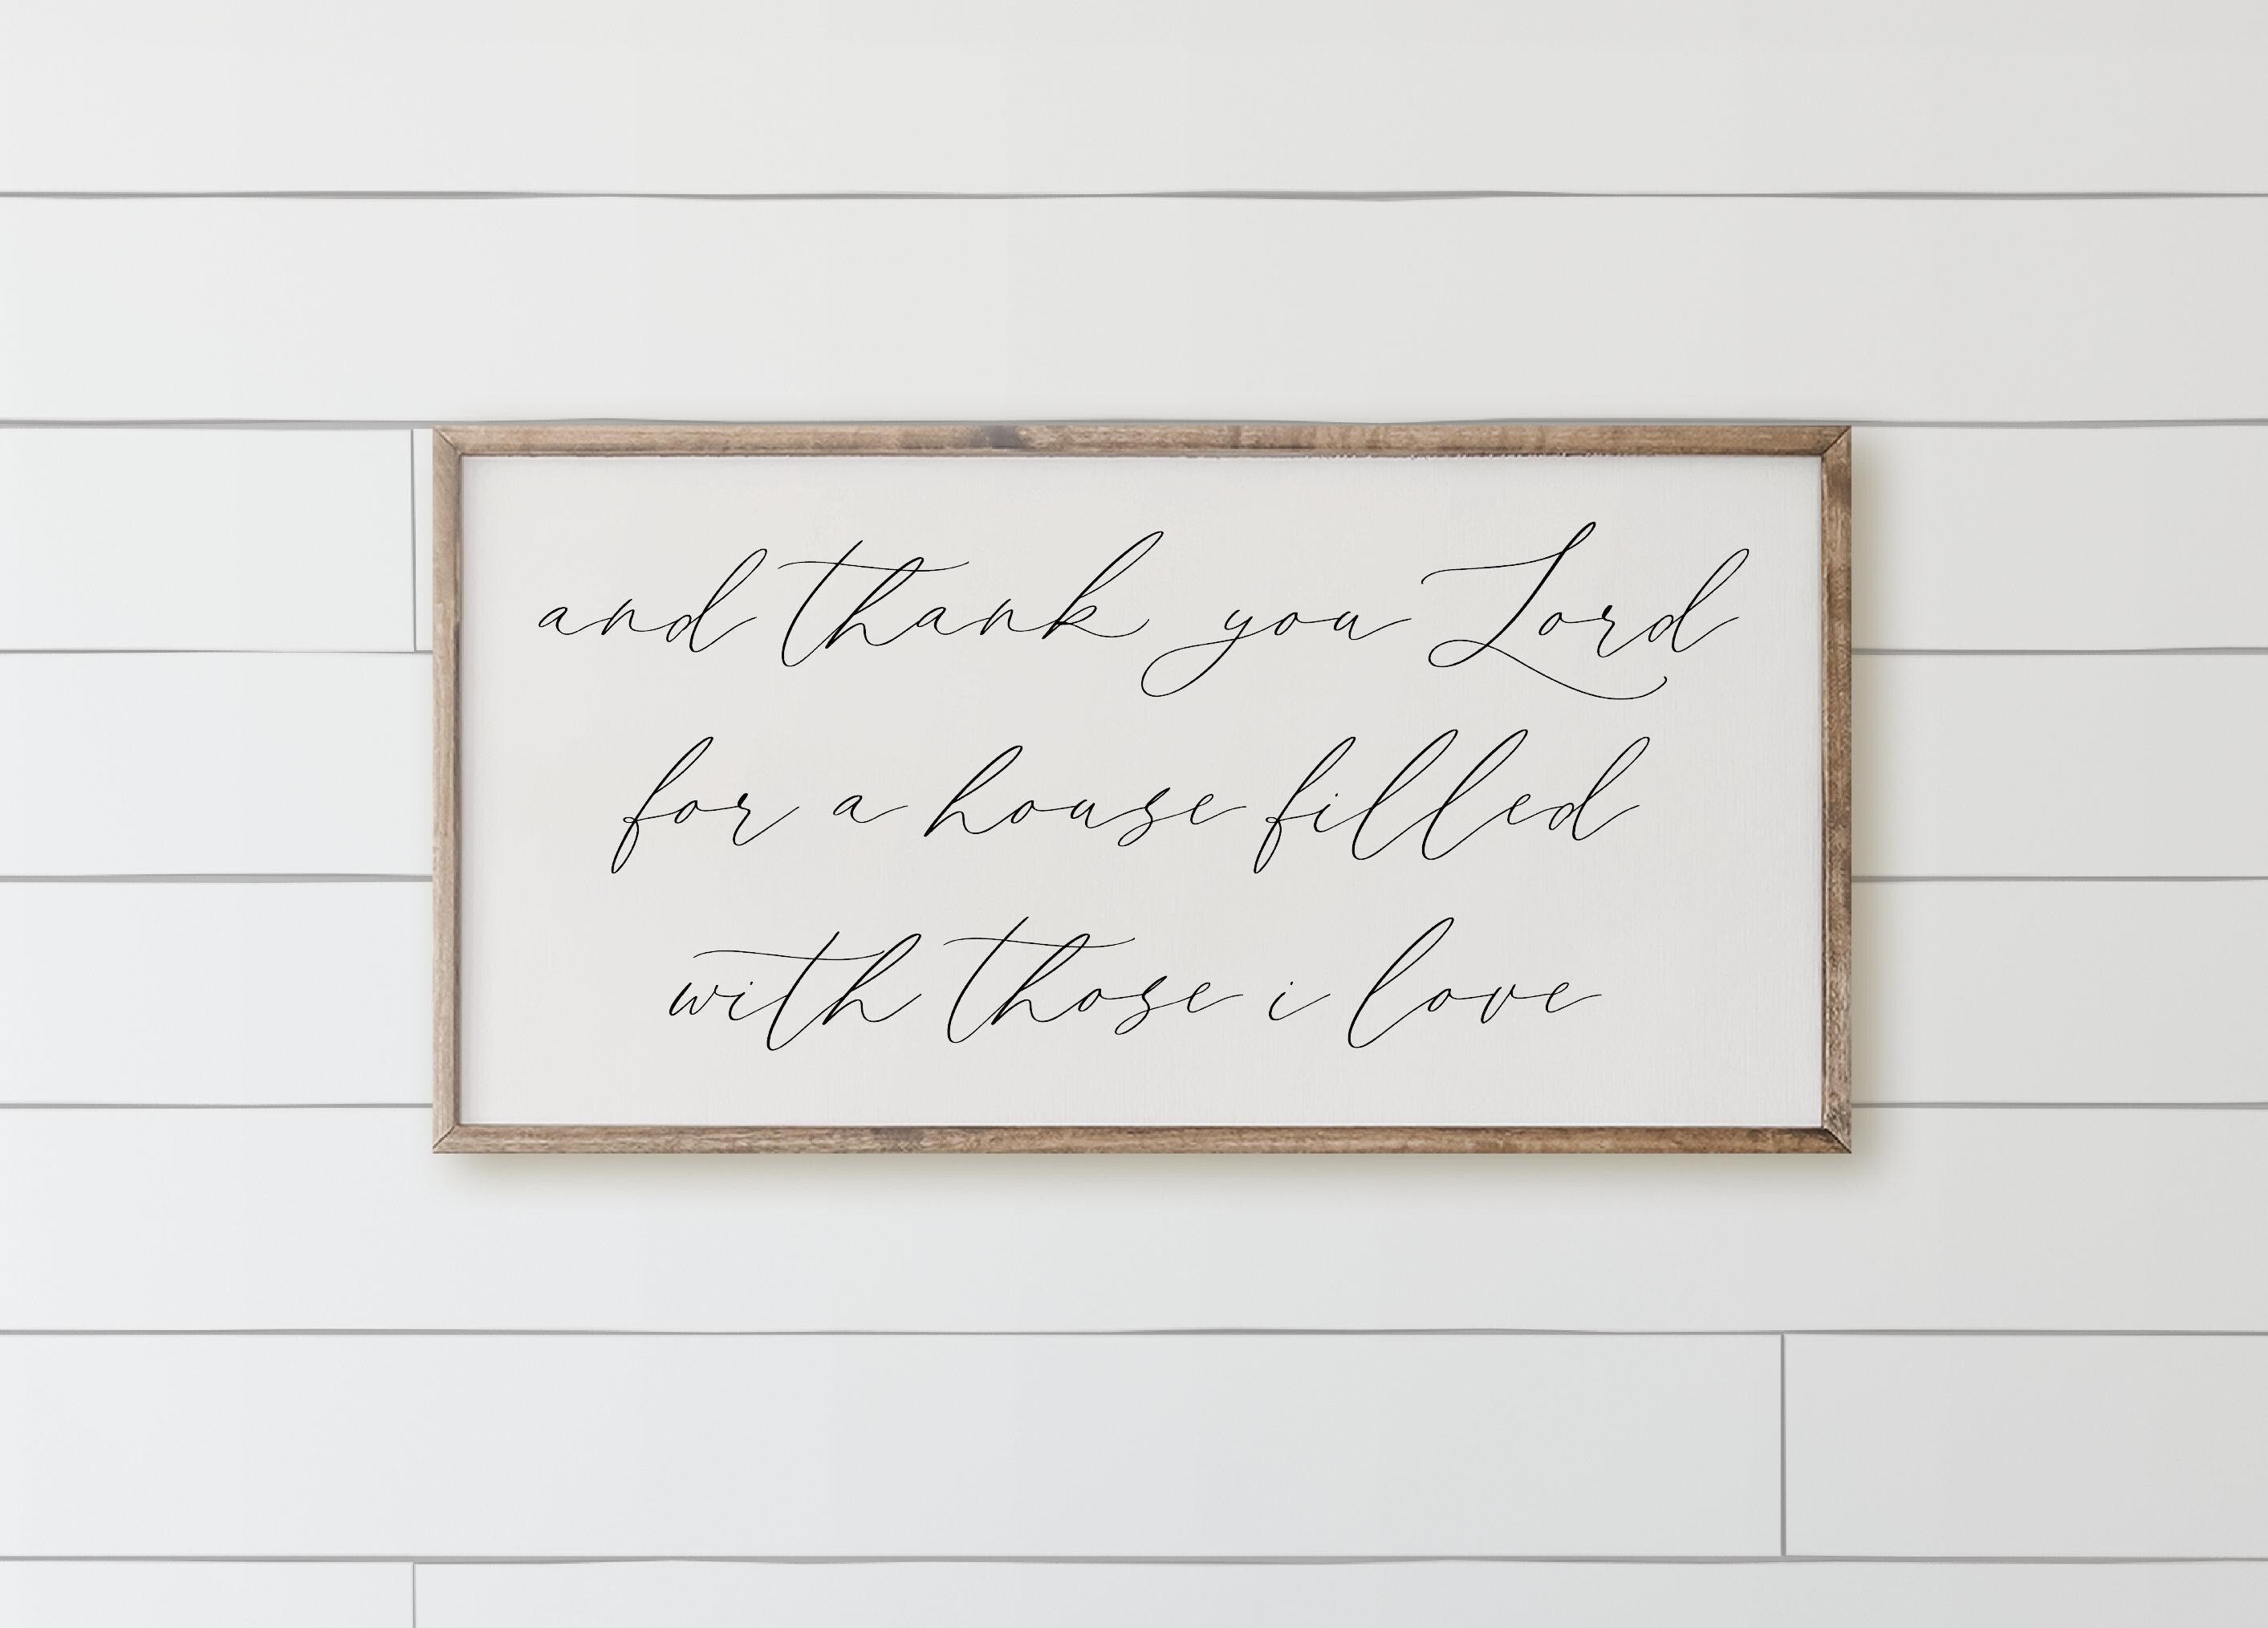 and thank you Lord
for a house filled
with those i love